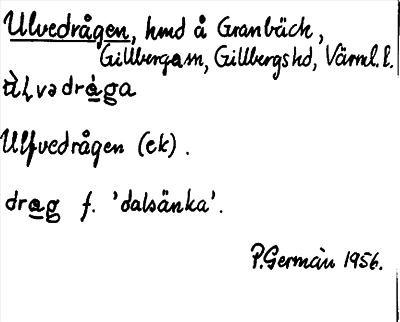 Ulvedrågen, hmd å Granbäck,
Gillberga sn, Gillbergs hd, Värml. l.
ùlvədrága
Ulfvedrågen (ek).
drag f. 'dalsänka'.
P. Germàn 1956.